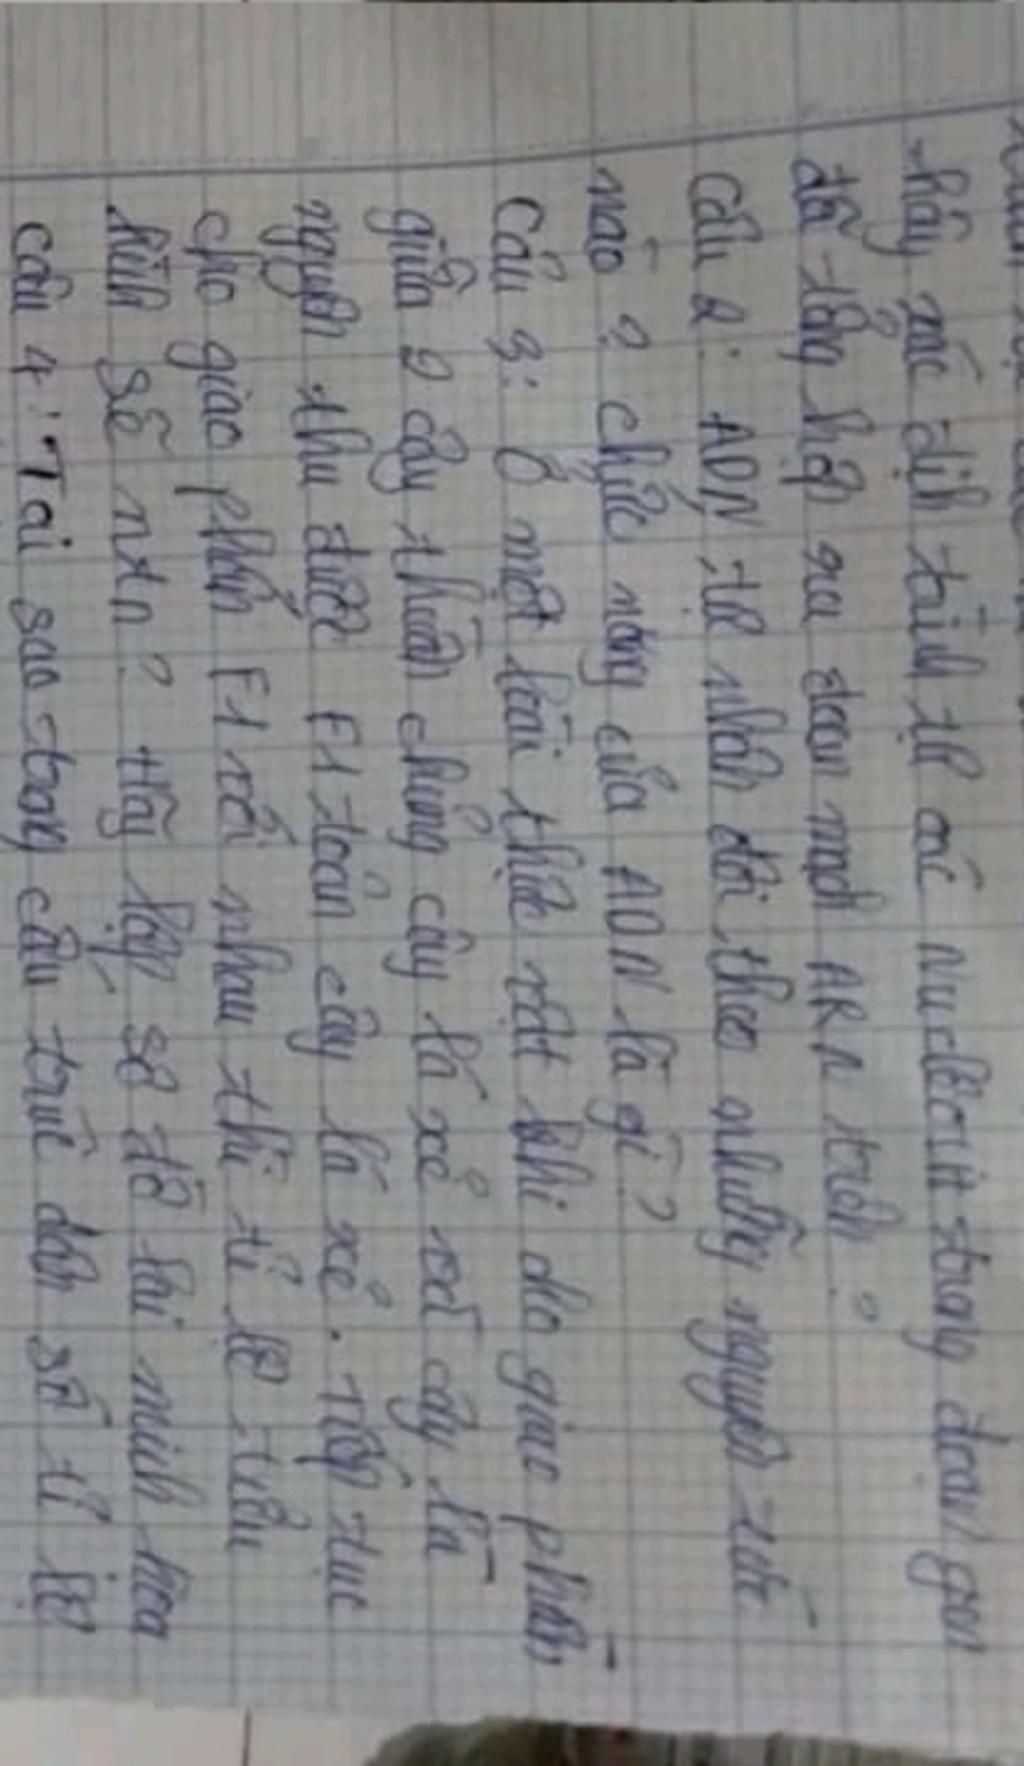 hãy xác định trình tự các Nuclêôtit trong đoạn gen
đã tổng hợp ra đoạn mạch ARN trên?
Câu 2: ADN tự nhân đôi theo những nguyên tắc
nào? chức năng của ADN là gì?
Câu 3: Ở một loài thực vật khi cho giao phấn
giữa 2 cây thuần chủng cây lá xẻ với cây lá
nguyên thu được F1 toàn cây lá xẻ. Tiếp tục
cho giao phấn F1 với nhau thì tỉ lệ kiểu
hình sẽ ntn? Hãy lập sơ đồ lai minh họa
câu 4: Tại sao trong cấu trúc dân số tỉ lệ